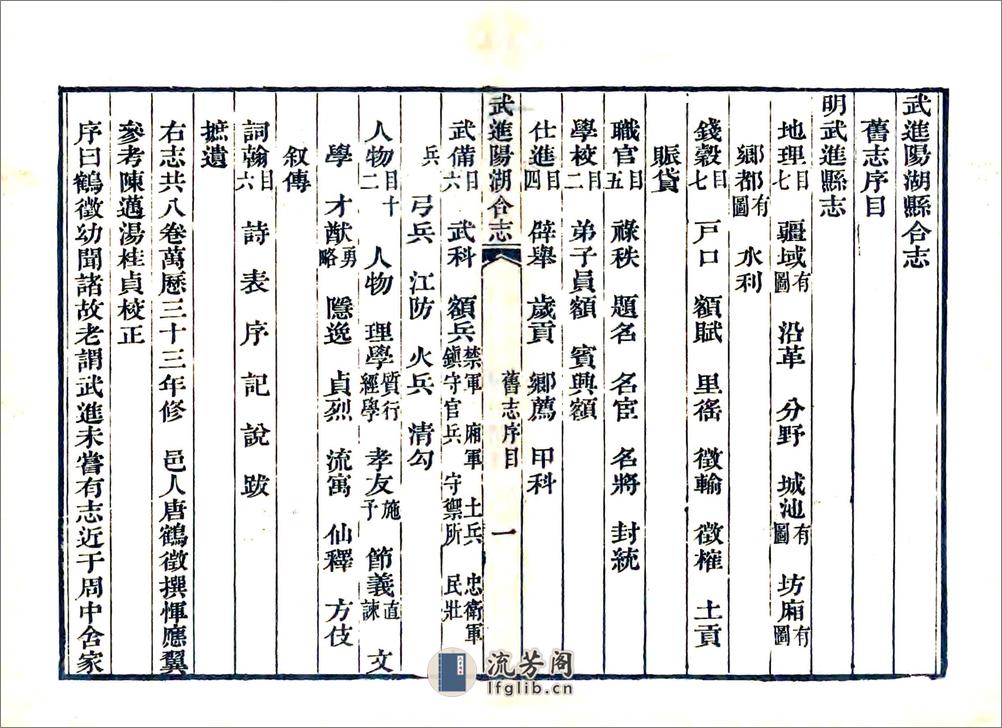 武進陽湖縣合志
舊志序目
明武進縣志
地理目七 疆域有圖 沿革 分野 城池有圖 坊廂有圖
鄉都有圖 水利
錢穀目七 戸口 額賦 里徭 徵輸 徵榷 土貢
賑貸
職官目五 祿秩 題名 名宦 名將 封統
學校目二 弟子員額 賓興額
仕進目四 辟舉 歲貢 鄉薦 甲科
武進陽湖合志 舊志序目 一
武備目六 武科 額兵禁軍 廂軍 土兵 忠衛軍 鎮守官兵 守禦所 民壯
兵 弓兵 江防 火兵 清勾
人物目十二 人物 理學質行 經學 孝友施予 節義直諫 文
學 才猷勇略 隱逸 貞烈 流寓 仙釋 方伎
叙傳
詞翰目六 詩 表 序 記 說 跋
摭遺
右志共八卷萬歷三十三年修 邑人唐鶴徵撰惲應翼
參考陳邁湯桂貞校正
序曰鶴徵幼聞諸故老謂武進未嘗有志近于周中舍家
流芳阁
lfglib.cn